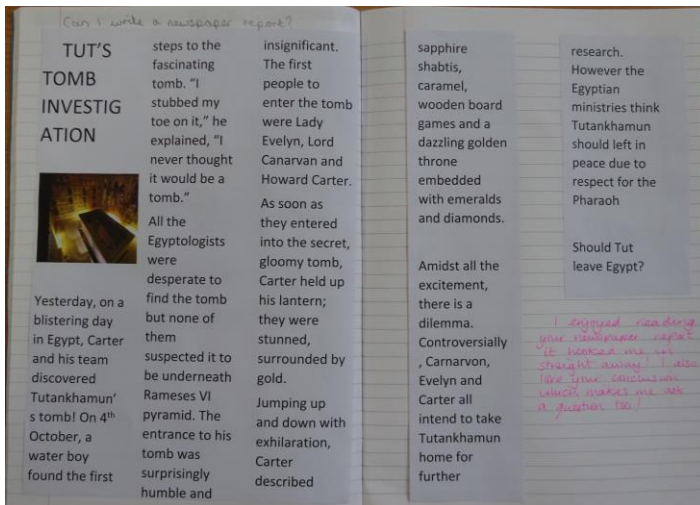 Can I write a newspaper report?
TUT'S
TOMB
INVESTIG
ATION
Yesterday, on a
blistering day
in Egypt, Carter
and his team
discovered
Tutankhamun'
s tomb! On 4th
October, a
water boy
found the first
steps to the
fascinating
tomb. "I
stubbed my
toe on it," he
explained, "I
never thought
it would be a
tomb."
All the
Egyptologists
were
desperate to
find the tomb
but none of
them
suspected it to
be underneath
Rameses VI
pyramid. The
entrance to his
tomb was
surprisingly
humble and
insignificant.
The first
people to
enter the tomb
were Lady
Evelyn, Lord
Canarvan and
Howard Carter.
As soon as
they entered
into the secret,
gloomy tomb,
Carter held up
his lantern;
they were
stunned,
surrounded by
gold.
Jumping up
and down with
exhilaration,
Carter
described
sapphire
shabtis,
caramel,
wooden board
games and a
dazzling golden
throne
embedded
with emeralds
and diamonds.
Amidst all the
excitement,
there is a
dilemma.
Controversially
, Carnarvon,
Evelyn and
Carter all
intend to take
Tutankhamun
home for
further
research.
However the
Egyptian
ministries think
Tutankhamun
should left in
peace due to
respect for the
Pharaoh
Should Tut
leave Egypt?
I enjoyed reading
your newspaper report
it hooked me in
straight away! I also
love your conclusion
which makes me ask
a question too!